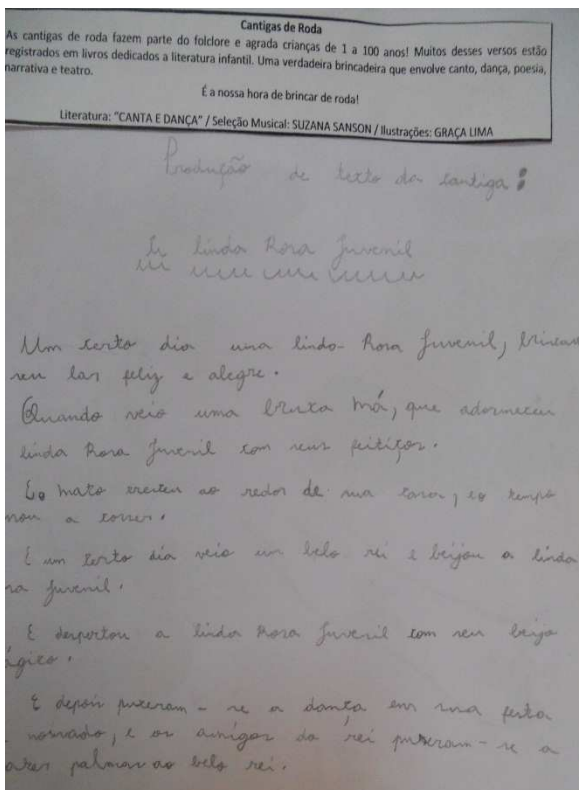 Cantigas de Roda
As cantigas de roda fazem parte do folclore e agrada crianças de 1 a 100 anos! Muitos desses versos estão
registrados em livros dedicados a literatura infantil. Uma verdadeira brincadeira que envolve canto, dança, poesia,
narrativa e teatro.
É a nossa hora de brincar de roda!
Literatura: "CANTA E DANÇA" / Seleção Musical: SUZANA SANSON / Ilustrações: GRAÇA LIMA
Produção de texto da cantiga:
linda Rosa Juvenil
Um certo dia uma linda Rosa Juvenil,
seu lar feliz e alegre.
Quando veio uma bruxa má, que adormeceu
linda Rosa Juvenil com seus feitiços.
Eo mato cresceu ao redor de sua casa, eo tempo
a correr.
E um certo dia veio um belo rei e beijou a linda
Juvenil.
E despertou a linda Rosa Juvenil com seu beijo
ágico.
E depois puzeram-se a dança em uma festa
e os amigos do rei puzeram-se a
palmas ao belo rei.